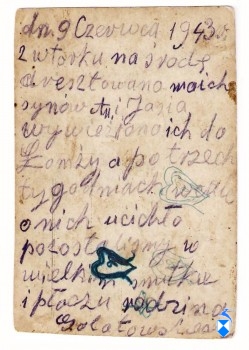 dn. 9 Czerwca 1943 r
z wtorku na środę
aresztowano moich
synów An. i Jasia
wywieziono ich do
Łomży a po trzech
tygodniach wieść
o nich ucichła
pozostaliśmy w
wielkim smutku
i płaczu rodzina